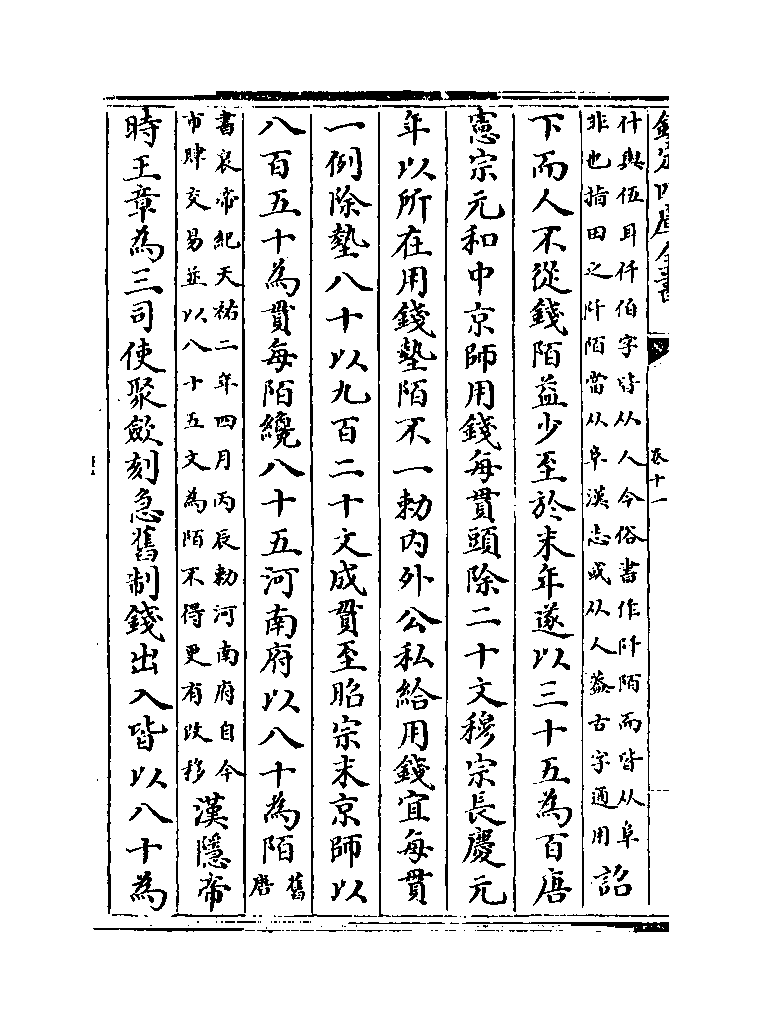 欽定四庫全書
卷十一
什與伍耳仟伯字皆从人今俗書作阡陌而皆从阜
非也指田之阡陌當从阜漢志或从人蓋古字通用
詔
下而人不從錢陌益少至於末年遂以三十五為百唐
憲宗元和中京師用錢每貫頭除二十文穆宗長慶元
年以所在用錢墊陌不一敕内外公私給用錢宜每貫
一例除墊八十以九百二十文成貫至昭宗末京師以
八百五十為貫每陌纔八十五河南府以八十為陌
舊
唐
書哀帝紀天祐二年四月丙辰勅河南府自今
市肆交易並以八十五文為陌不得更有改移
漢隱帝
時王章為三司使聚斂刻急舊制錢出入皆以八十為